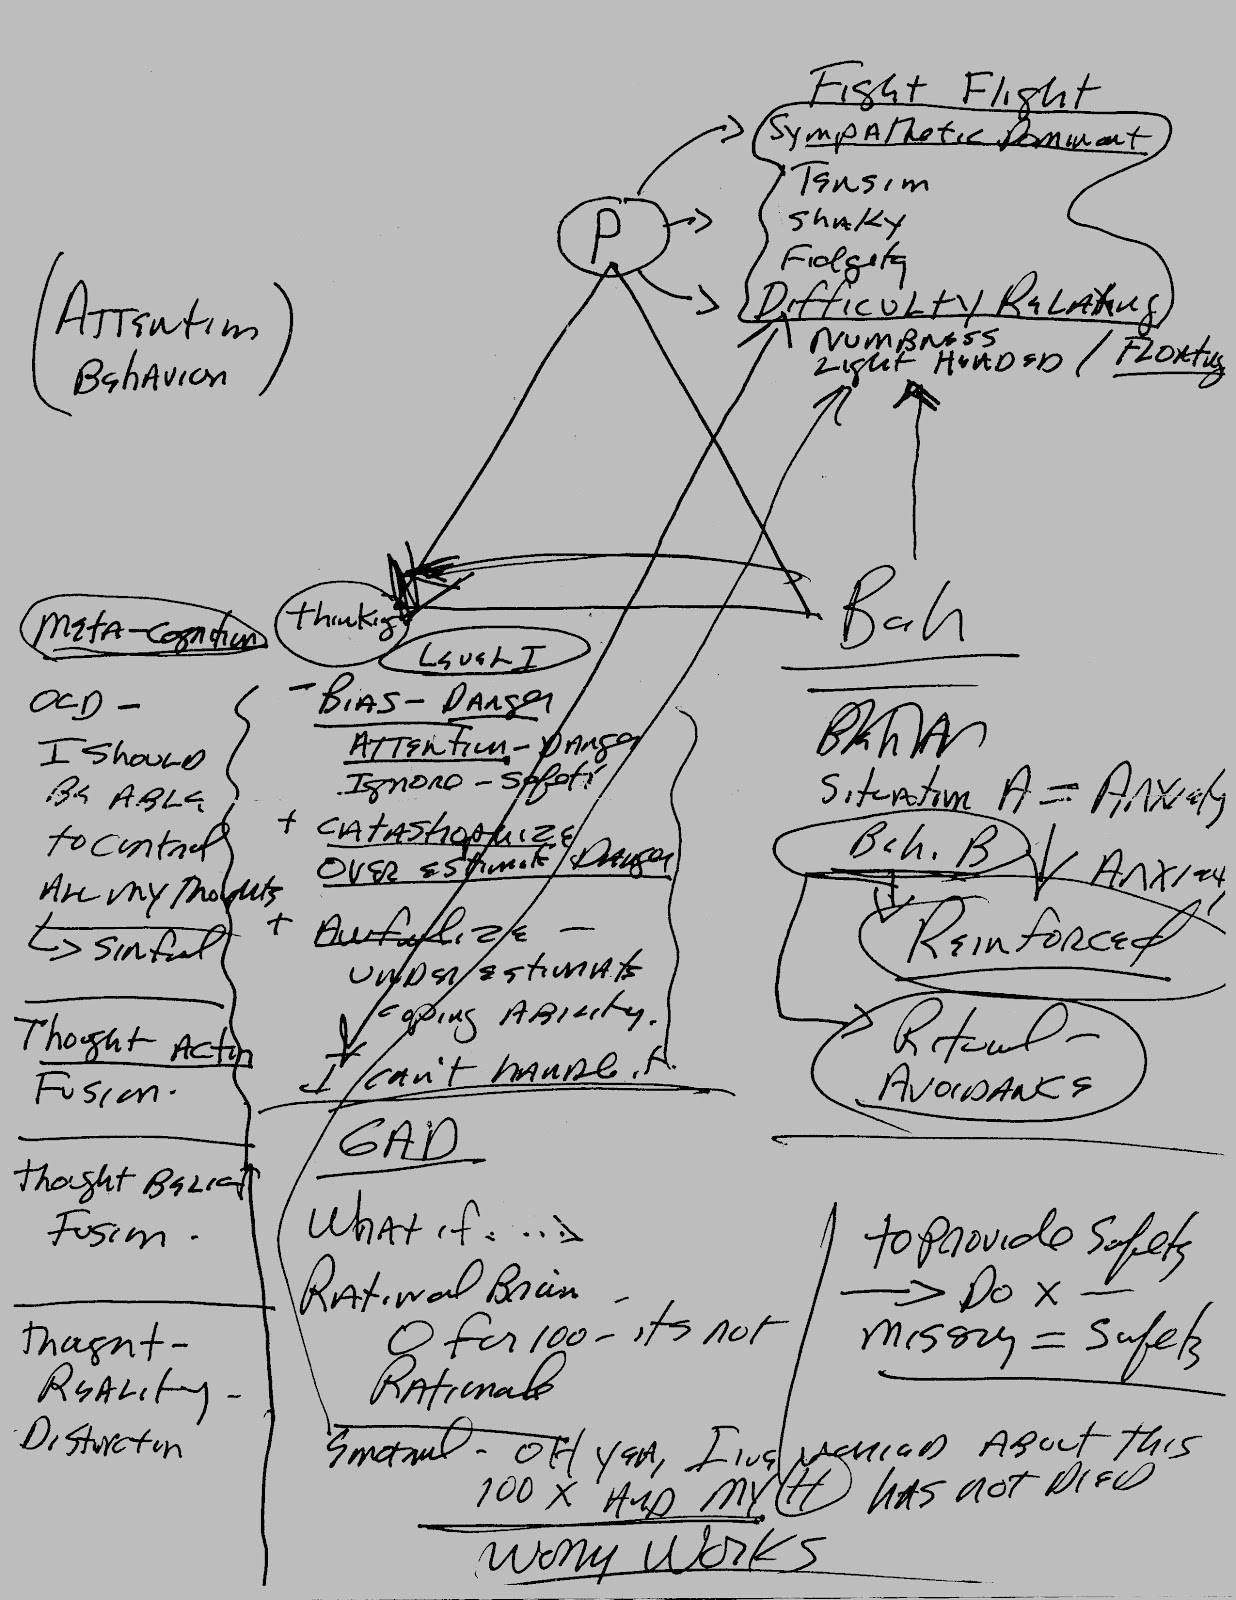 Fight Flight
Sympathetic Dominant
Tension
Shaky
Fidgety
Difficulty Relaxing
Numbness
Light Headed / Floating
P
(Attention
Behavior)
Meta-Cognition
OCD -
I should
Be able
to control
All my thoughts
↳ sinful
Thought Action
Fusion.
Thought Belief
Fusion.
Thought-
Reality-
Distortion
thinking
Level I
- Bias - Danger
Attention - Danger
Ignore - Safety
+ Catastrophize
Over estimate Danger
+ Awfulize -
Under estimate
coping Ability.
I can't handle it.
GAD
What if. ...>
Rational Brain -
0 for 100 - its not
Rational
Emotional - OH yea, I've worried About this
100 x And my (H) has not Died
Worry Works
Beh
Situation A = Anxiety
Beh. B ↓ Anxiety
Reinforced
Ritual -
Avoidance
to provide Safety
→ Do x —
missing = Safety